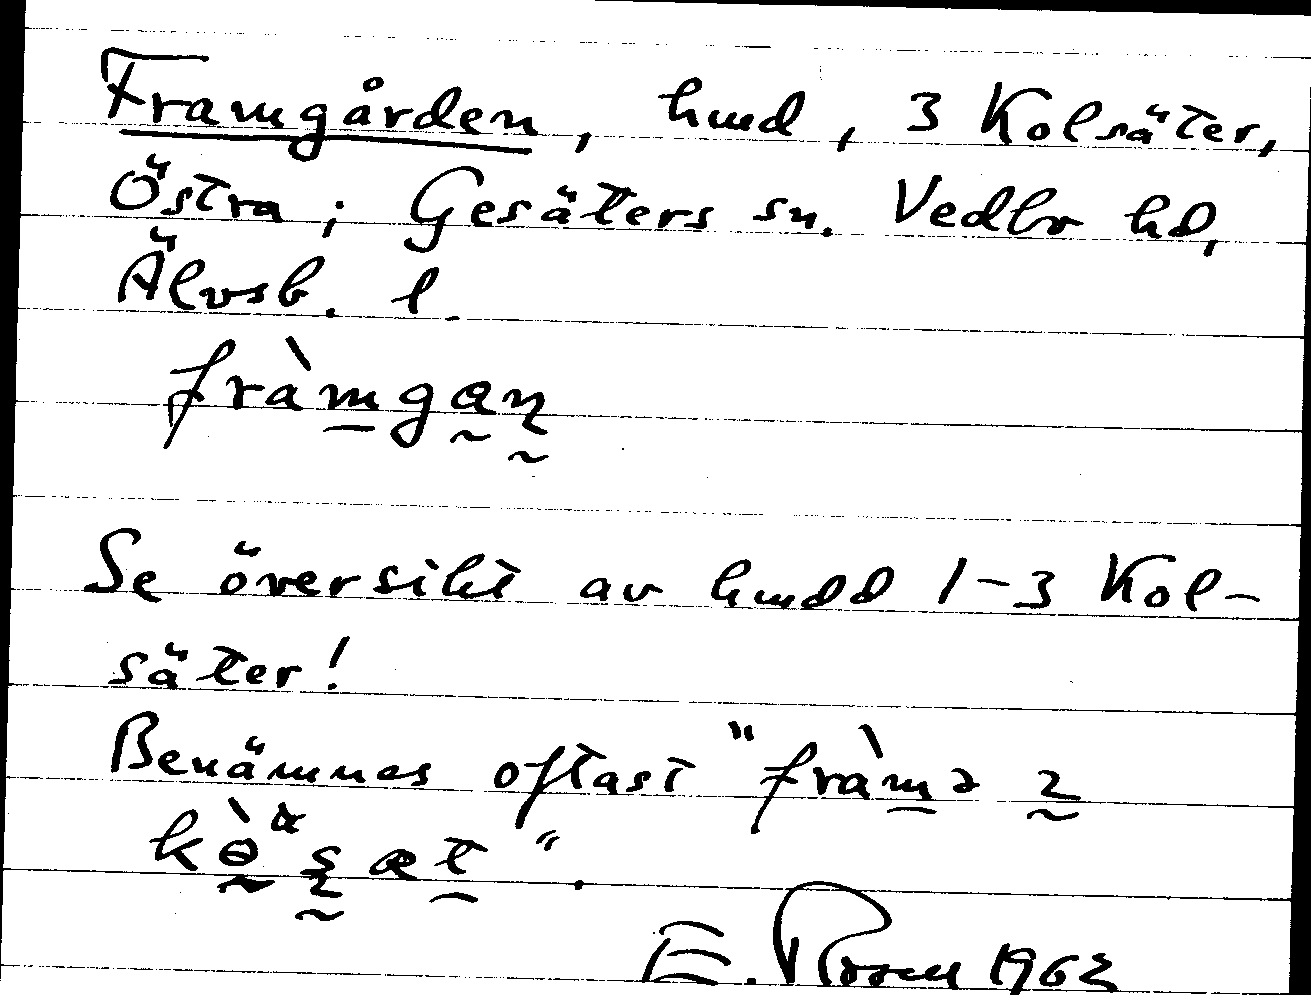 Framgården, hmd, 3 Kolsäter,
Östra; Gesäters sn. Vedbo hd,
Älvsb. l.
fràmgan
Se översikt av hmdd 1-3 Kol-
säter!
Benämnes oftast "fràmə 2
E. Rosen 1962